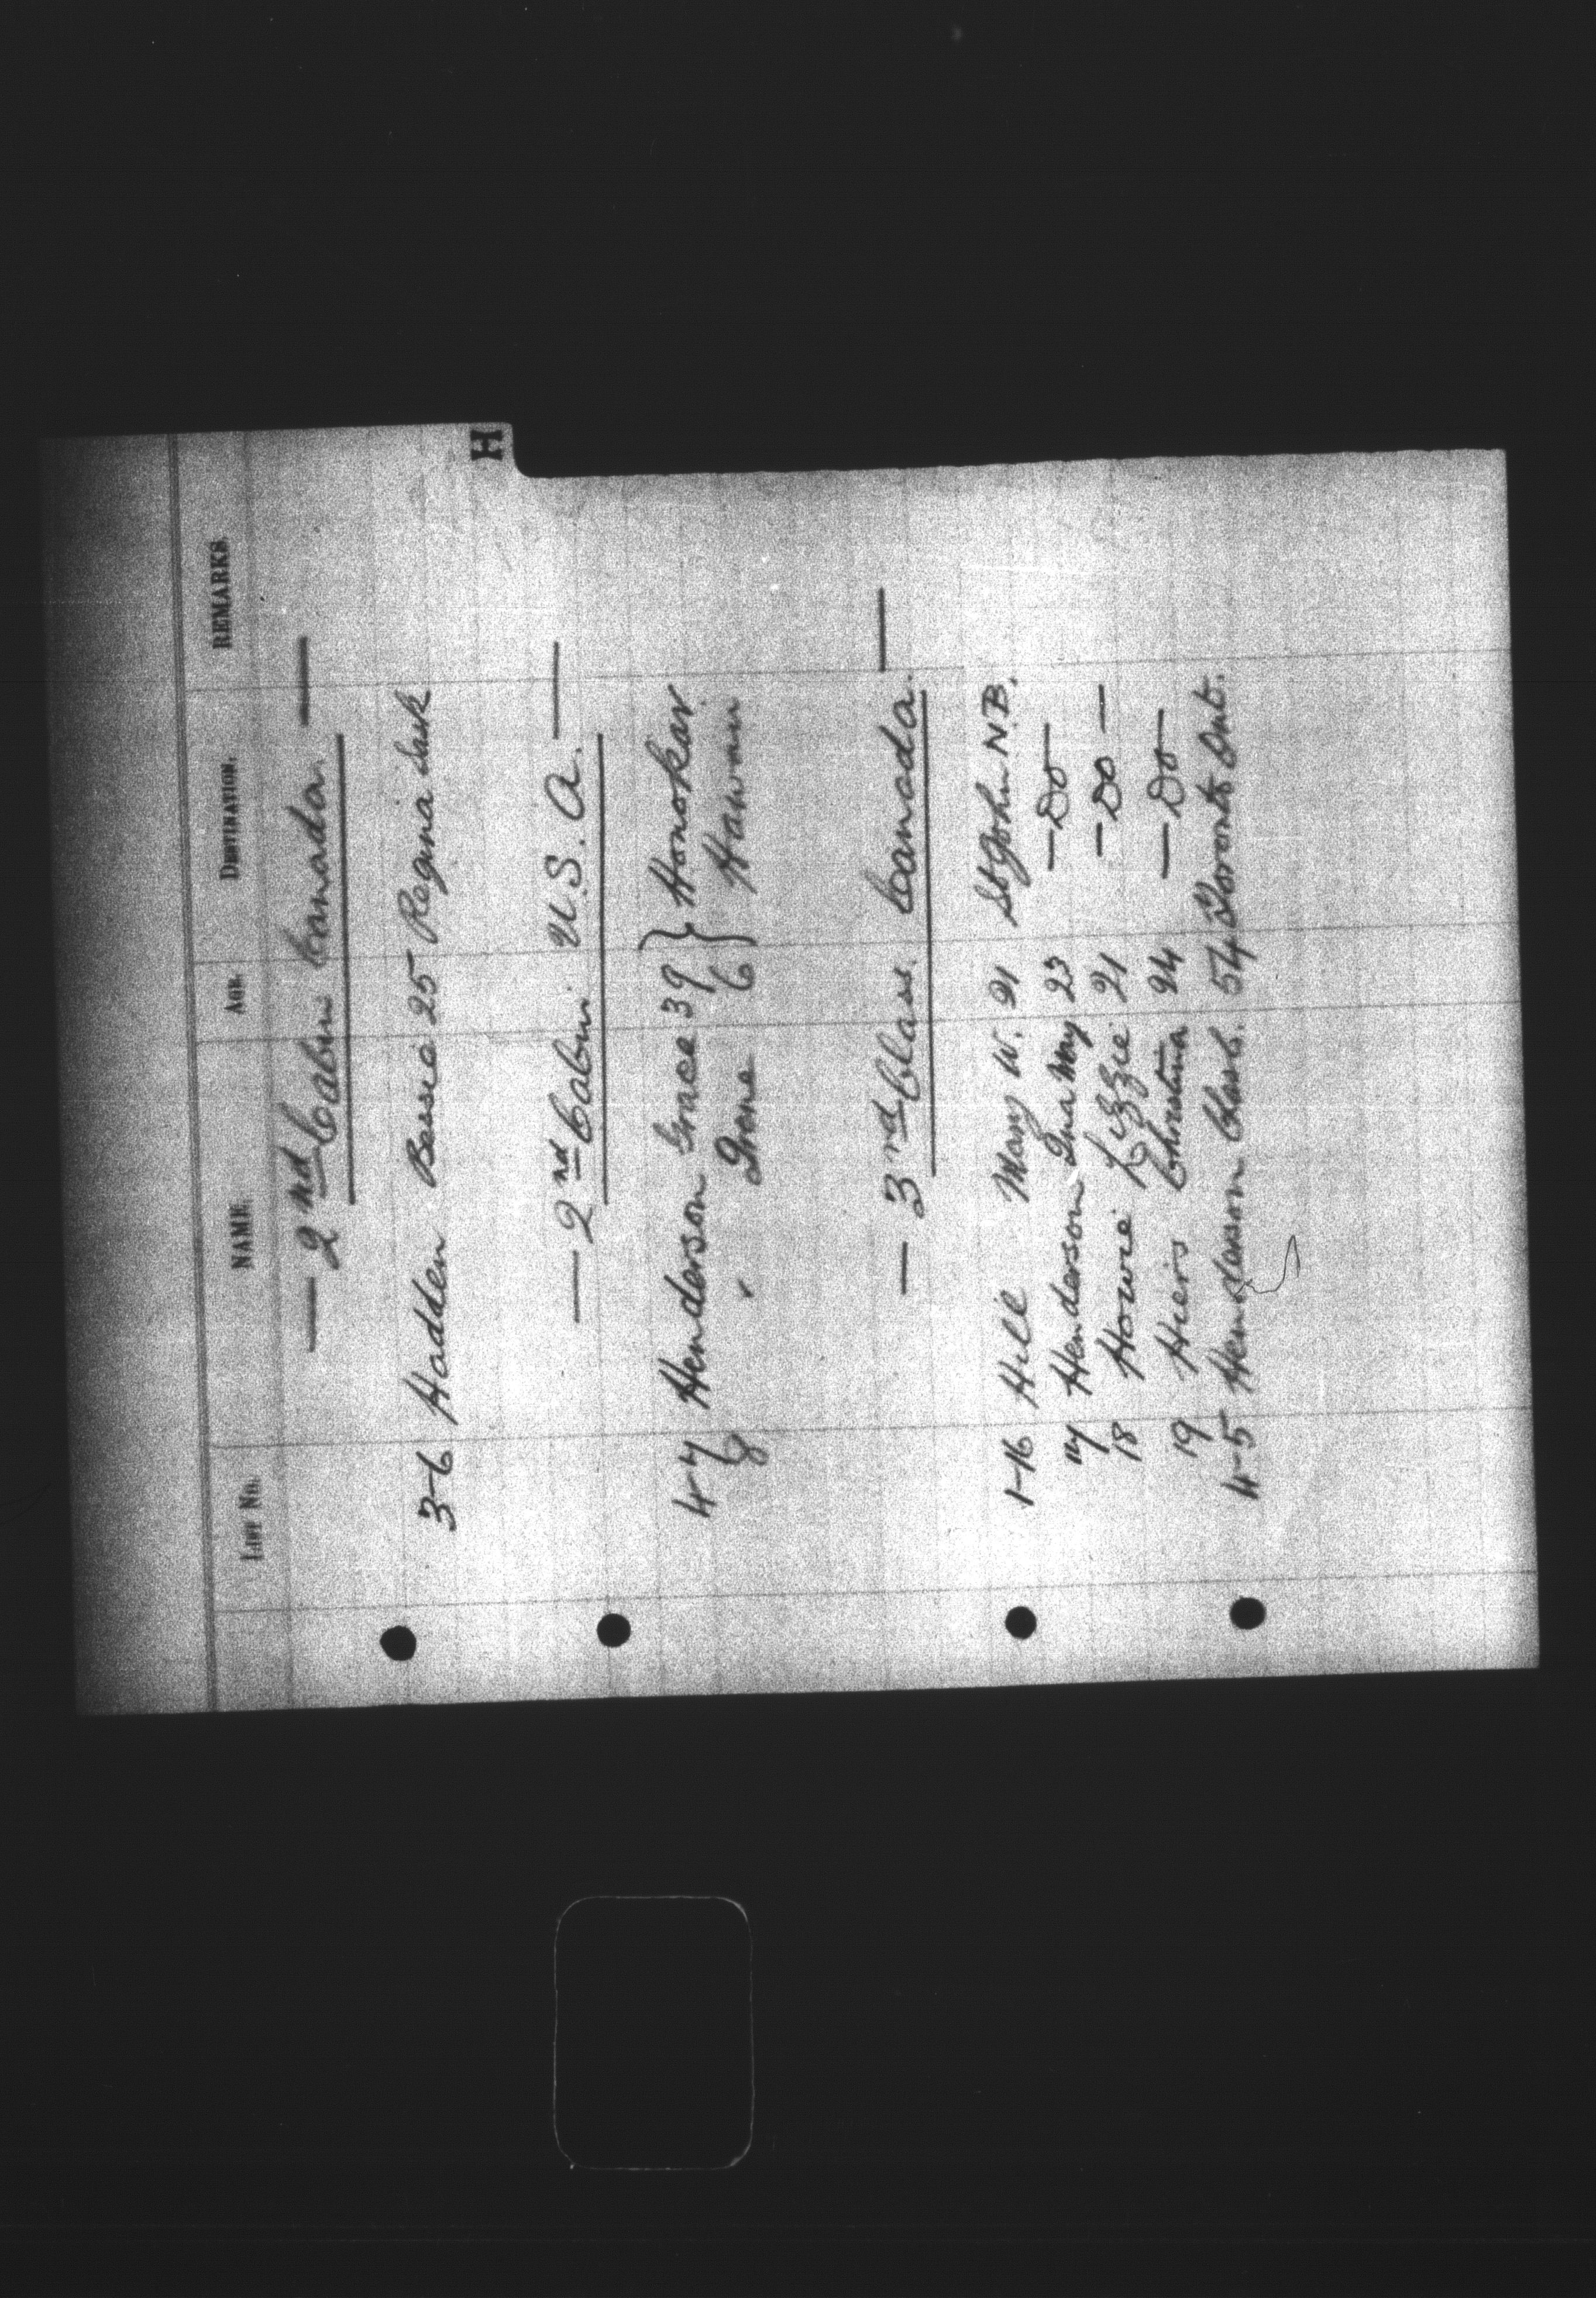 H
LIST No. NAME. AGE. DESTINATION. REMARKS.
— 2nd Cabin Canada. —
3-6 Hadden Bessie 25 Regina Sask
— 2nd Cabin U.S.A. —
4-7 Henderson Grace 39 } Honokaa
8 " Irene 6 } Hawaii
— 3rd Class. Canada. —
1-16 Hill Mary W. 21 St John N.B.
17 Henderson Ina May 23 — Do —
18 Howie Lizzie 21 — Do —
19 Christina 24 — Do —
4-5 Henderson Chas. 54 Toronto Ont.